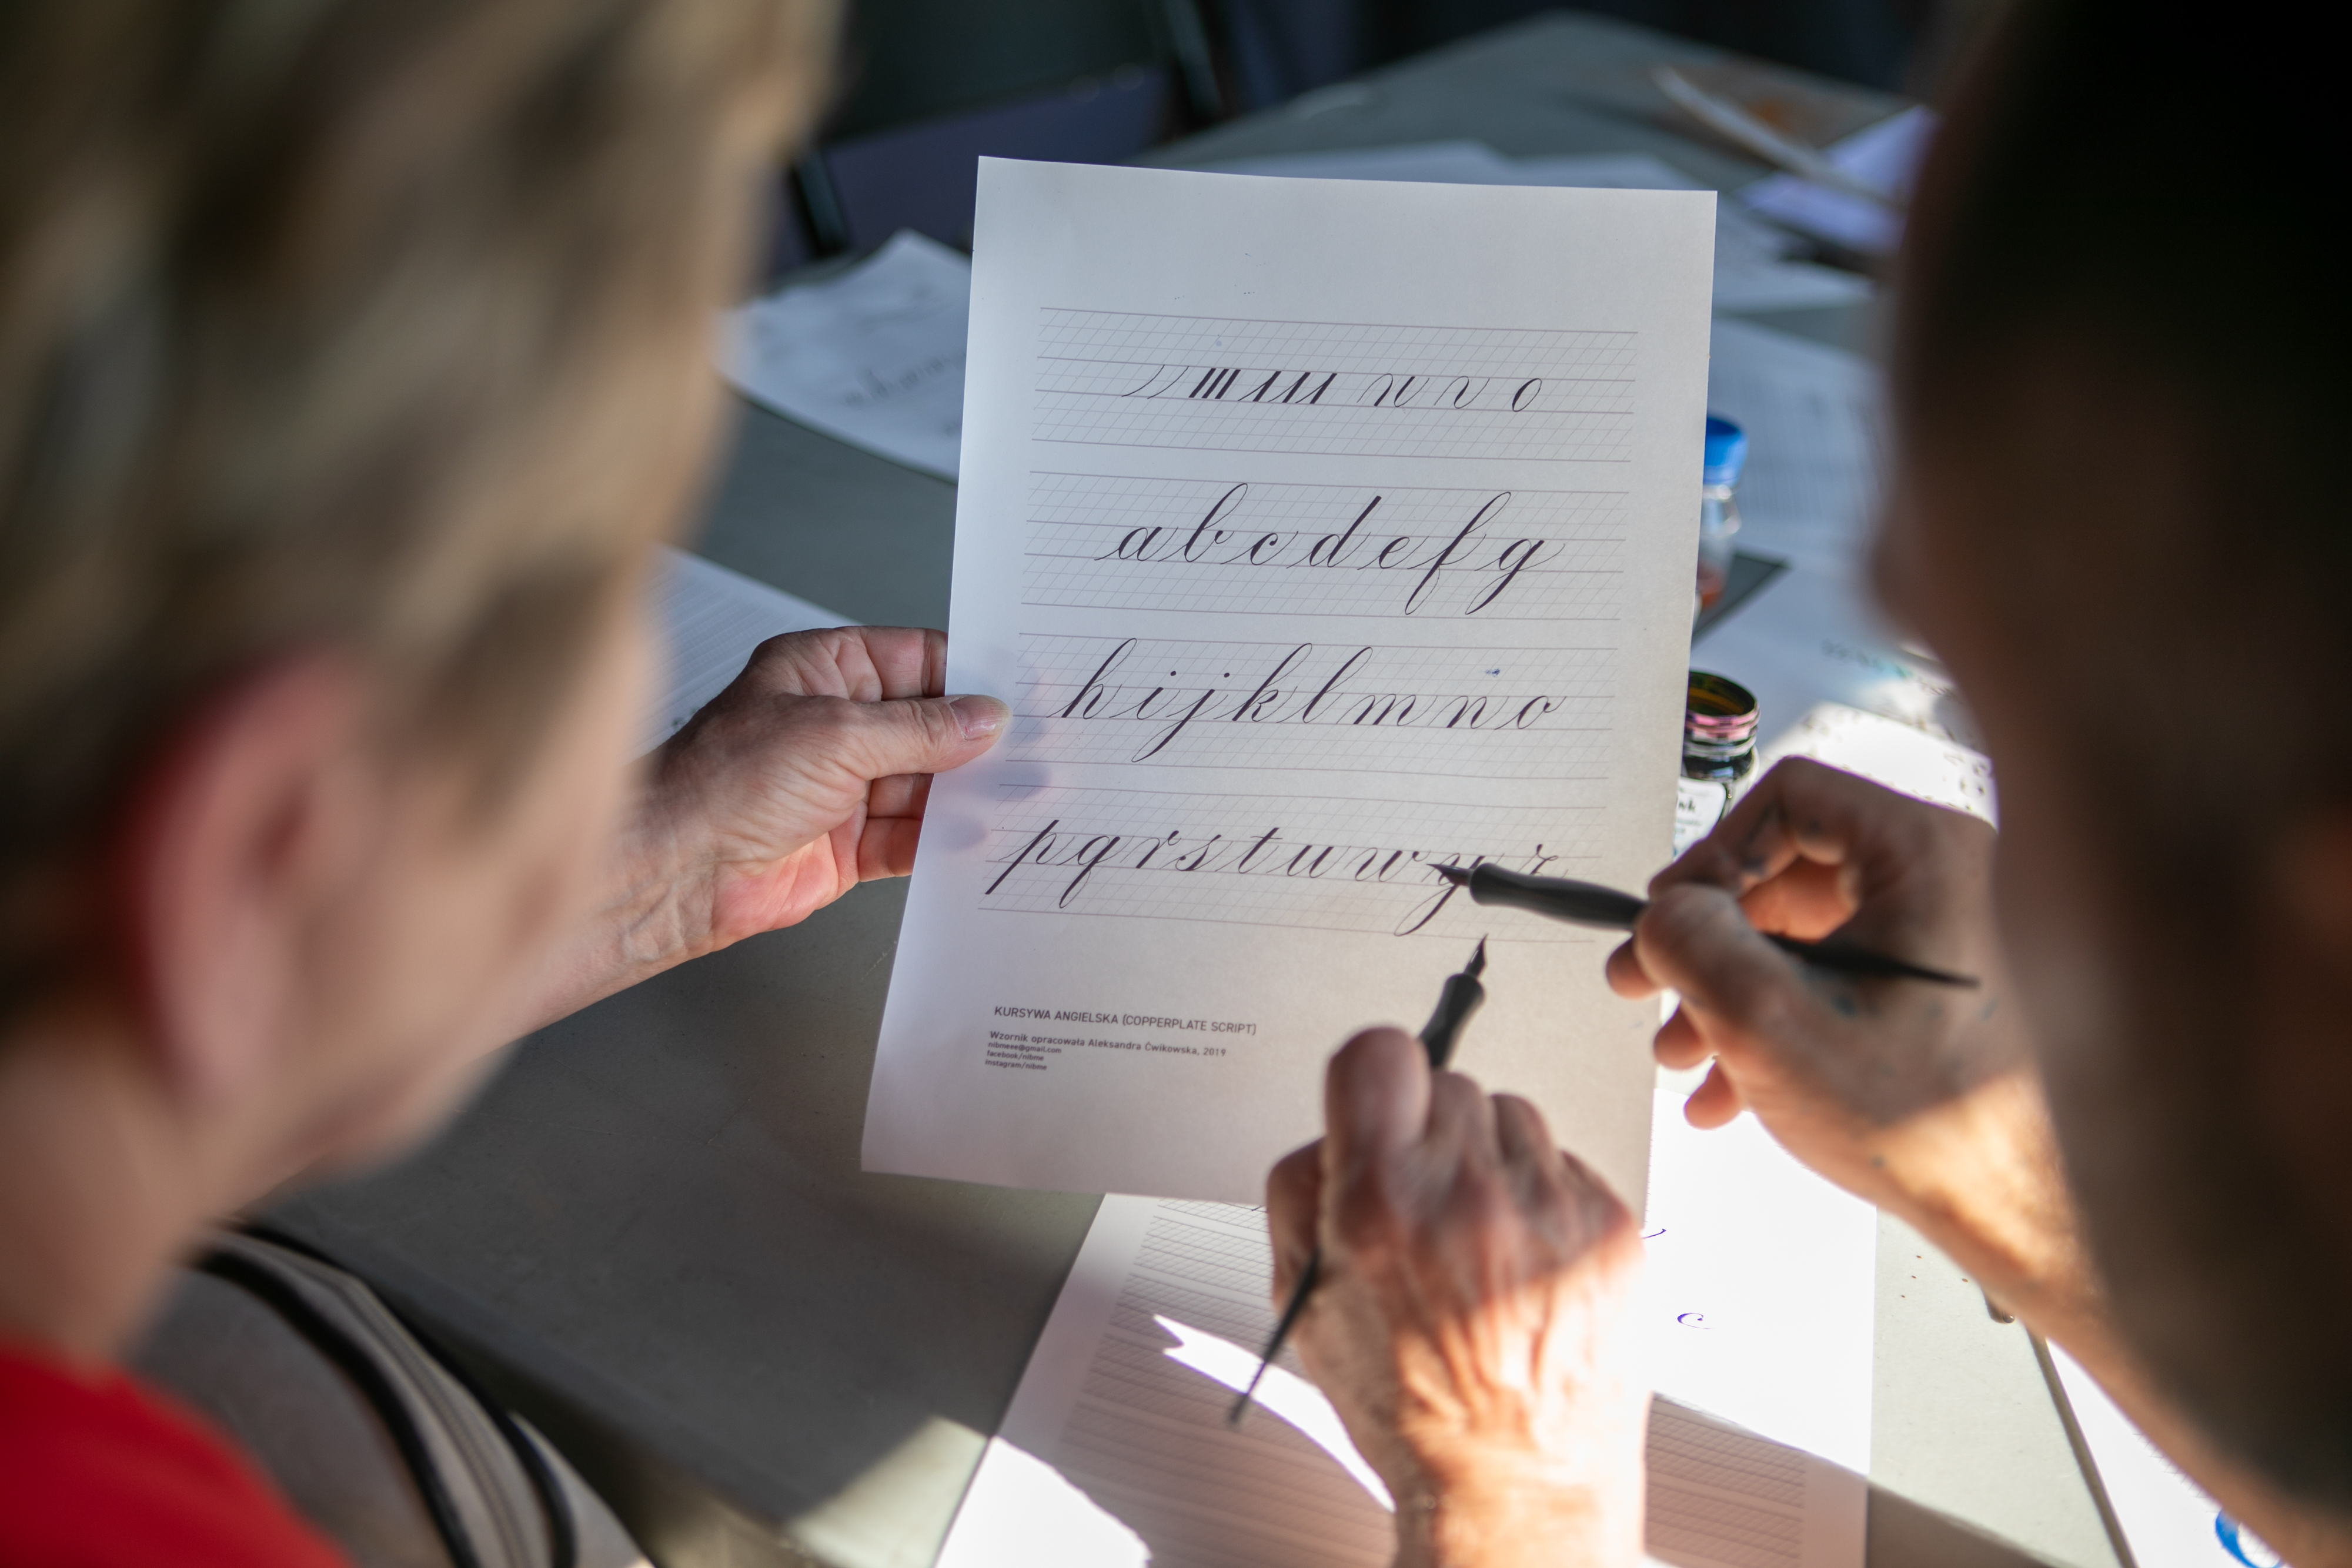 n v o
a b c d e f g
h i j k l m n o
p q r s t u w y z
KURSYWA ANGIELSKA (COPPERPLATE SCRIPT)
Wzornik opracowała Aleksandra Ćwikowska, 2019
nibmeee@gmail.com
facebook/nibme
instagram/nibme
c